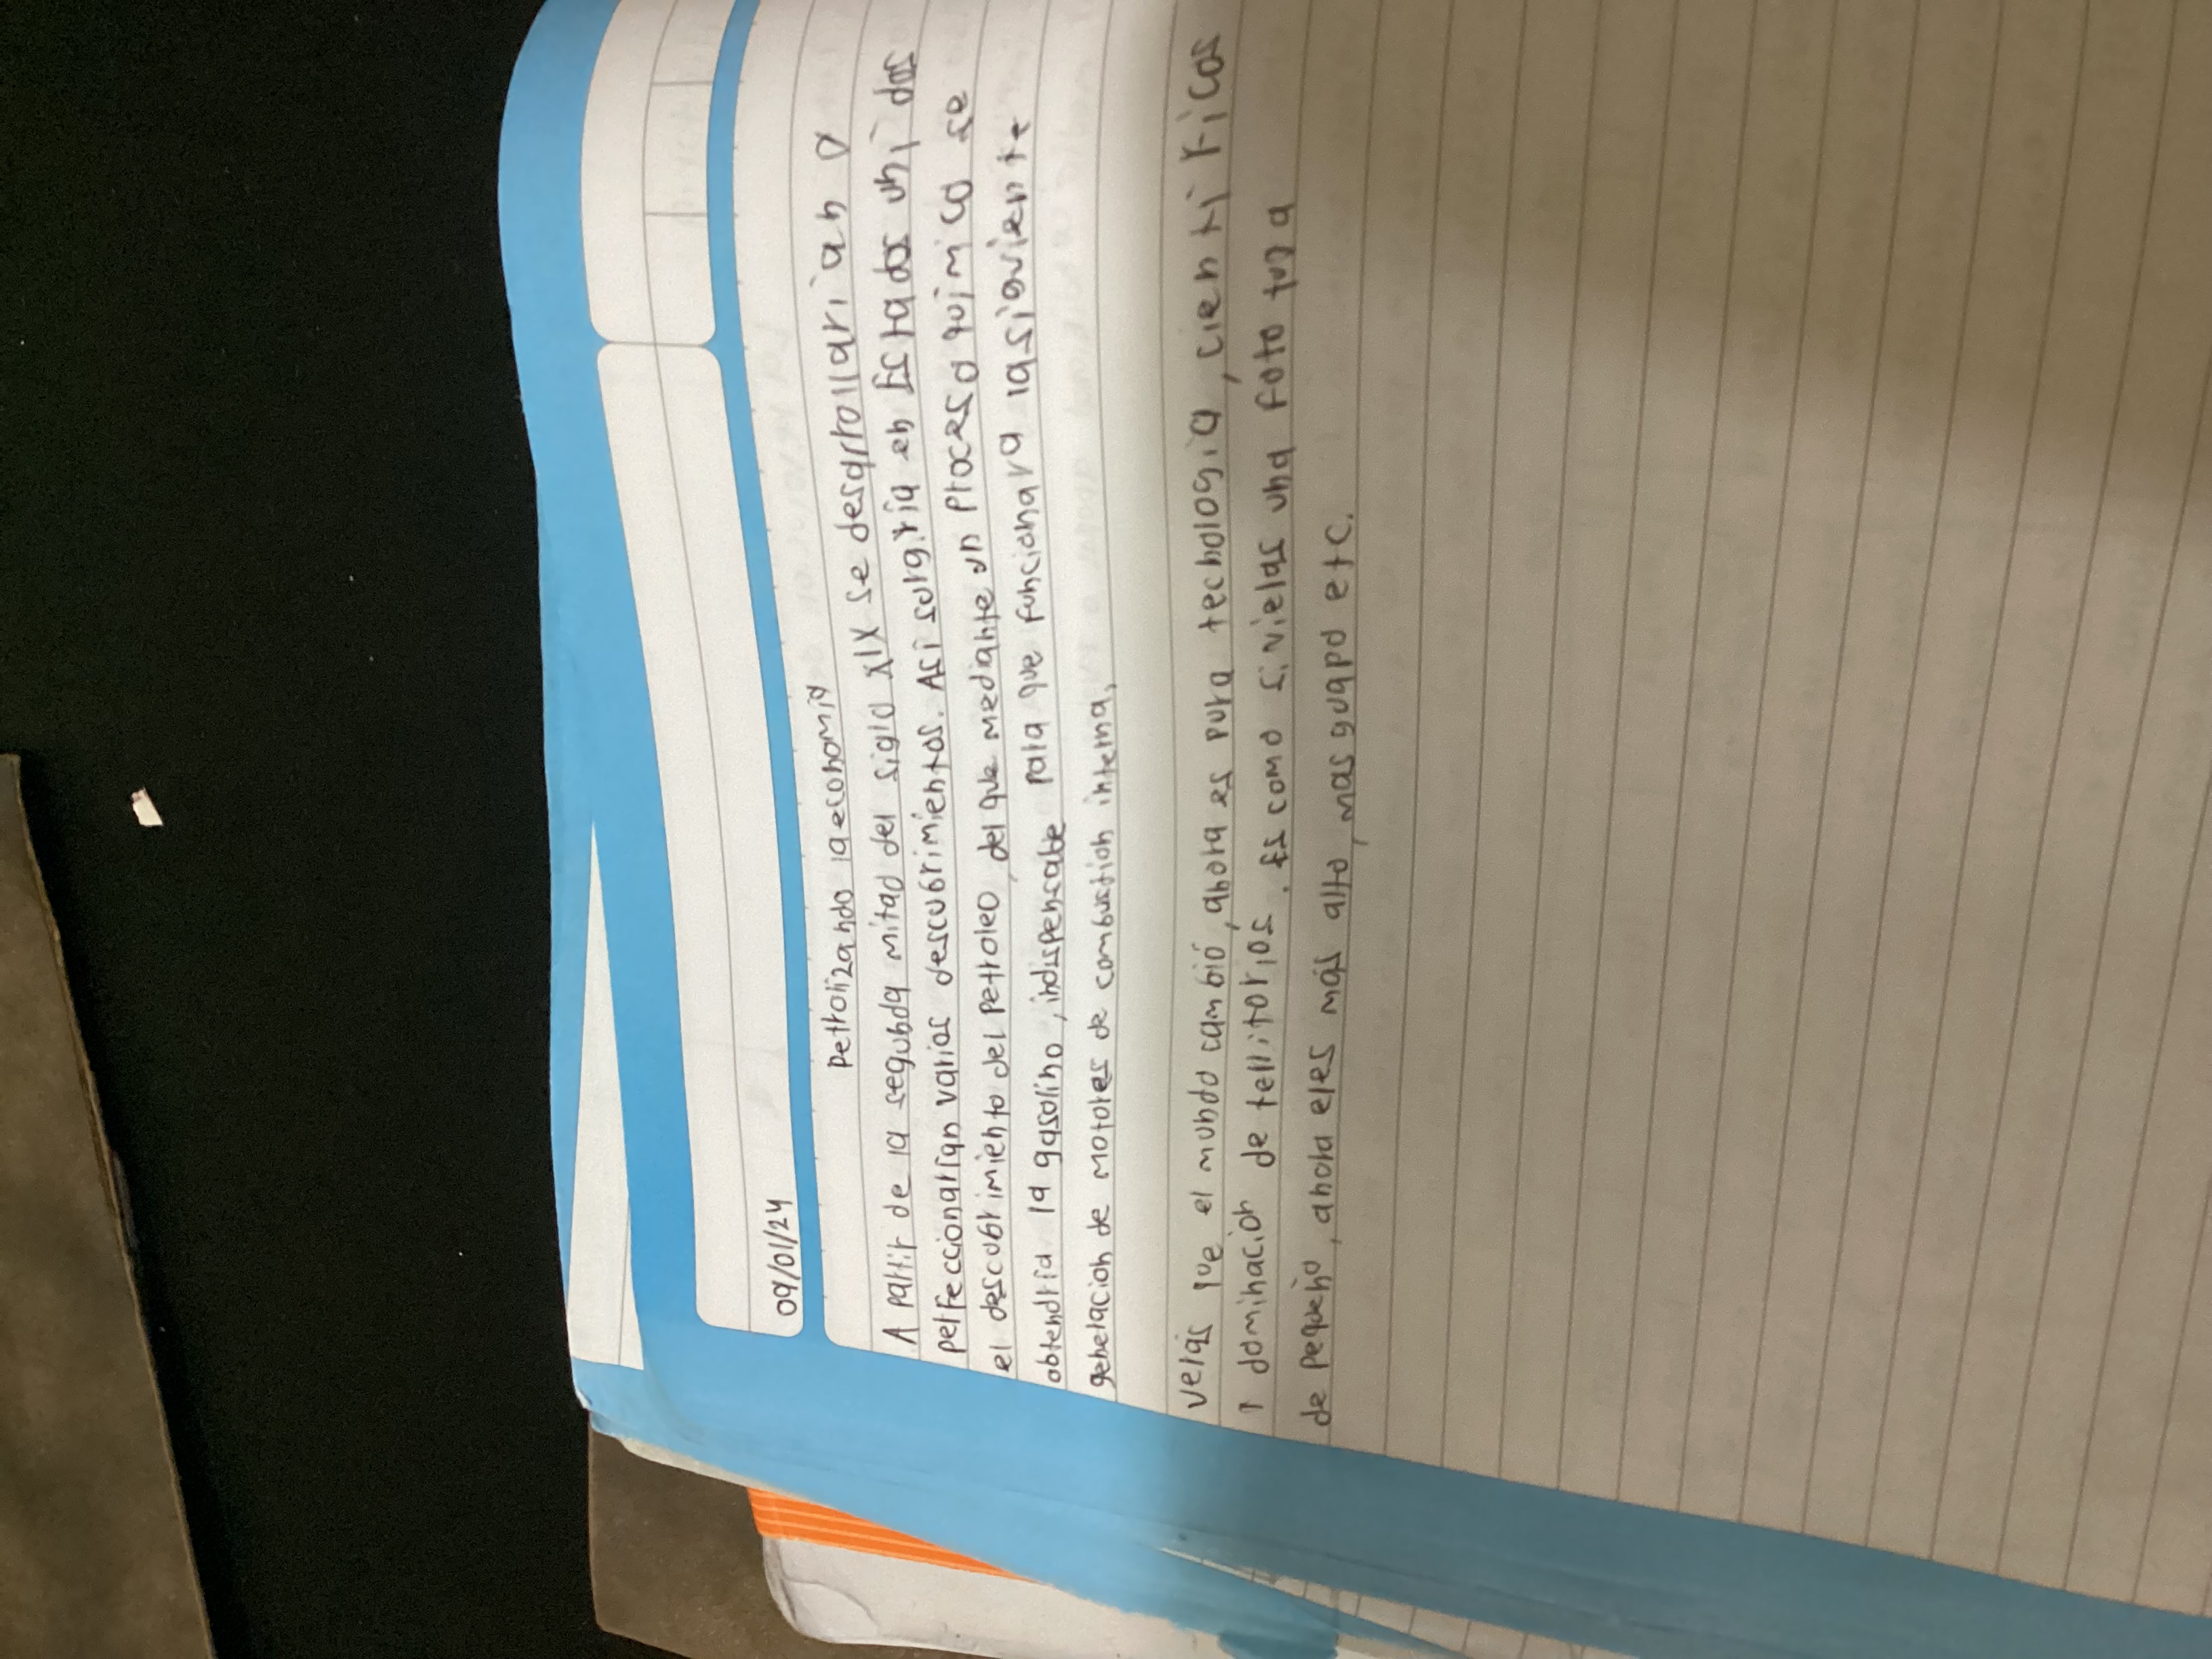 09/01/24
Petrolizando la economia
A partir de la segunda mitad del siglo XIX se desarrollarian o
perfeccionarian varios descubrimientos. Asi surgiria en Estados unidos
el descubrimiento del Petroleo, del que mediante un Proceso quimico se
obtendria la gasolino, indispensable para que funcionara la siguiente
generacion de motores de combustion interna,
veras que el mundo cambió, ahora es pura tecnologia, cientificos
y dominacion de territorios. Es como si vieras una foto tuya
de pequeño, ahora eres más alto, mas guapo etc.